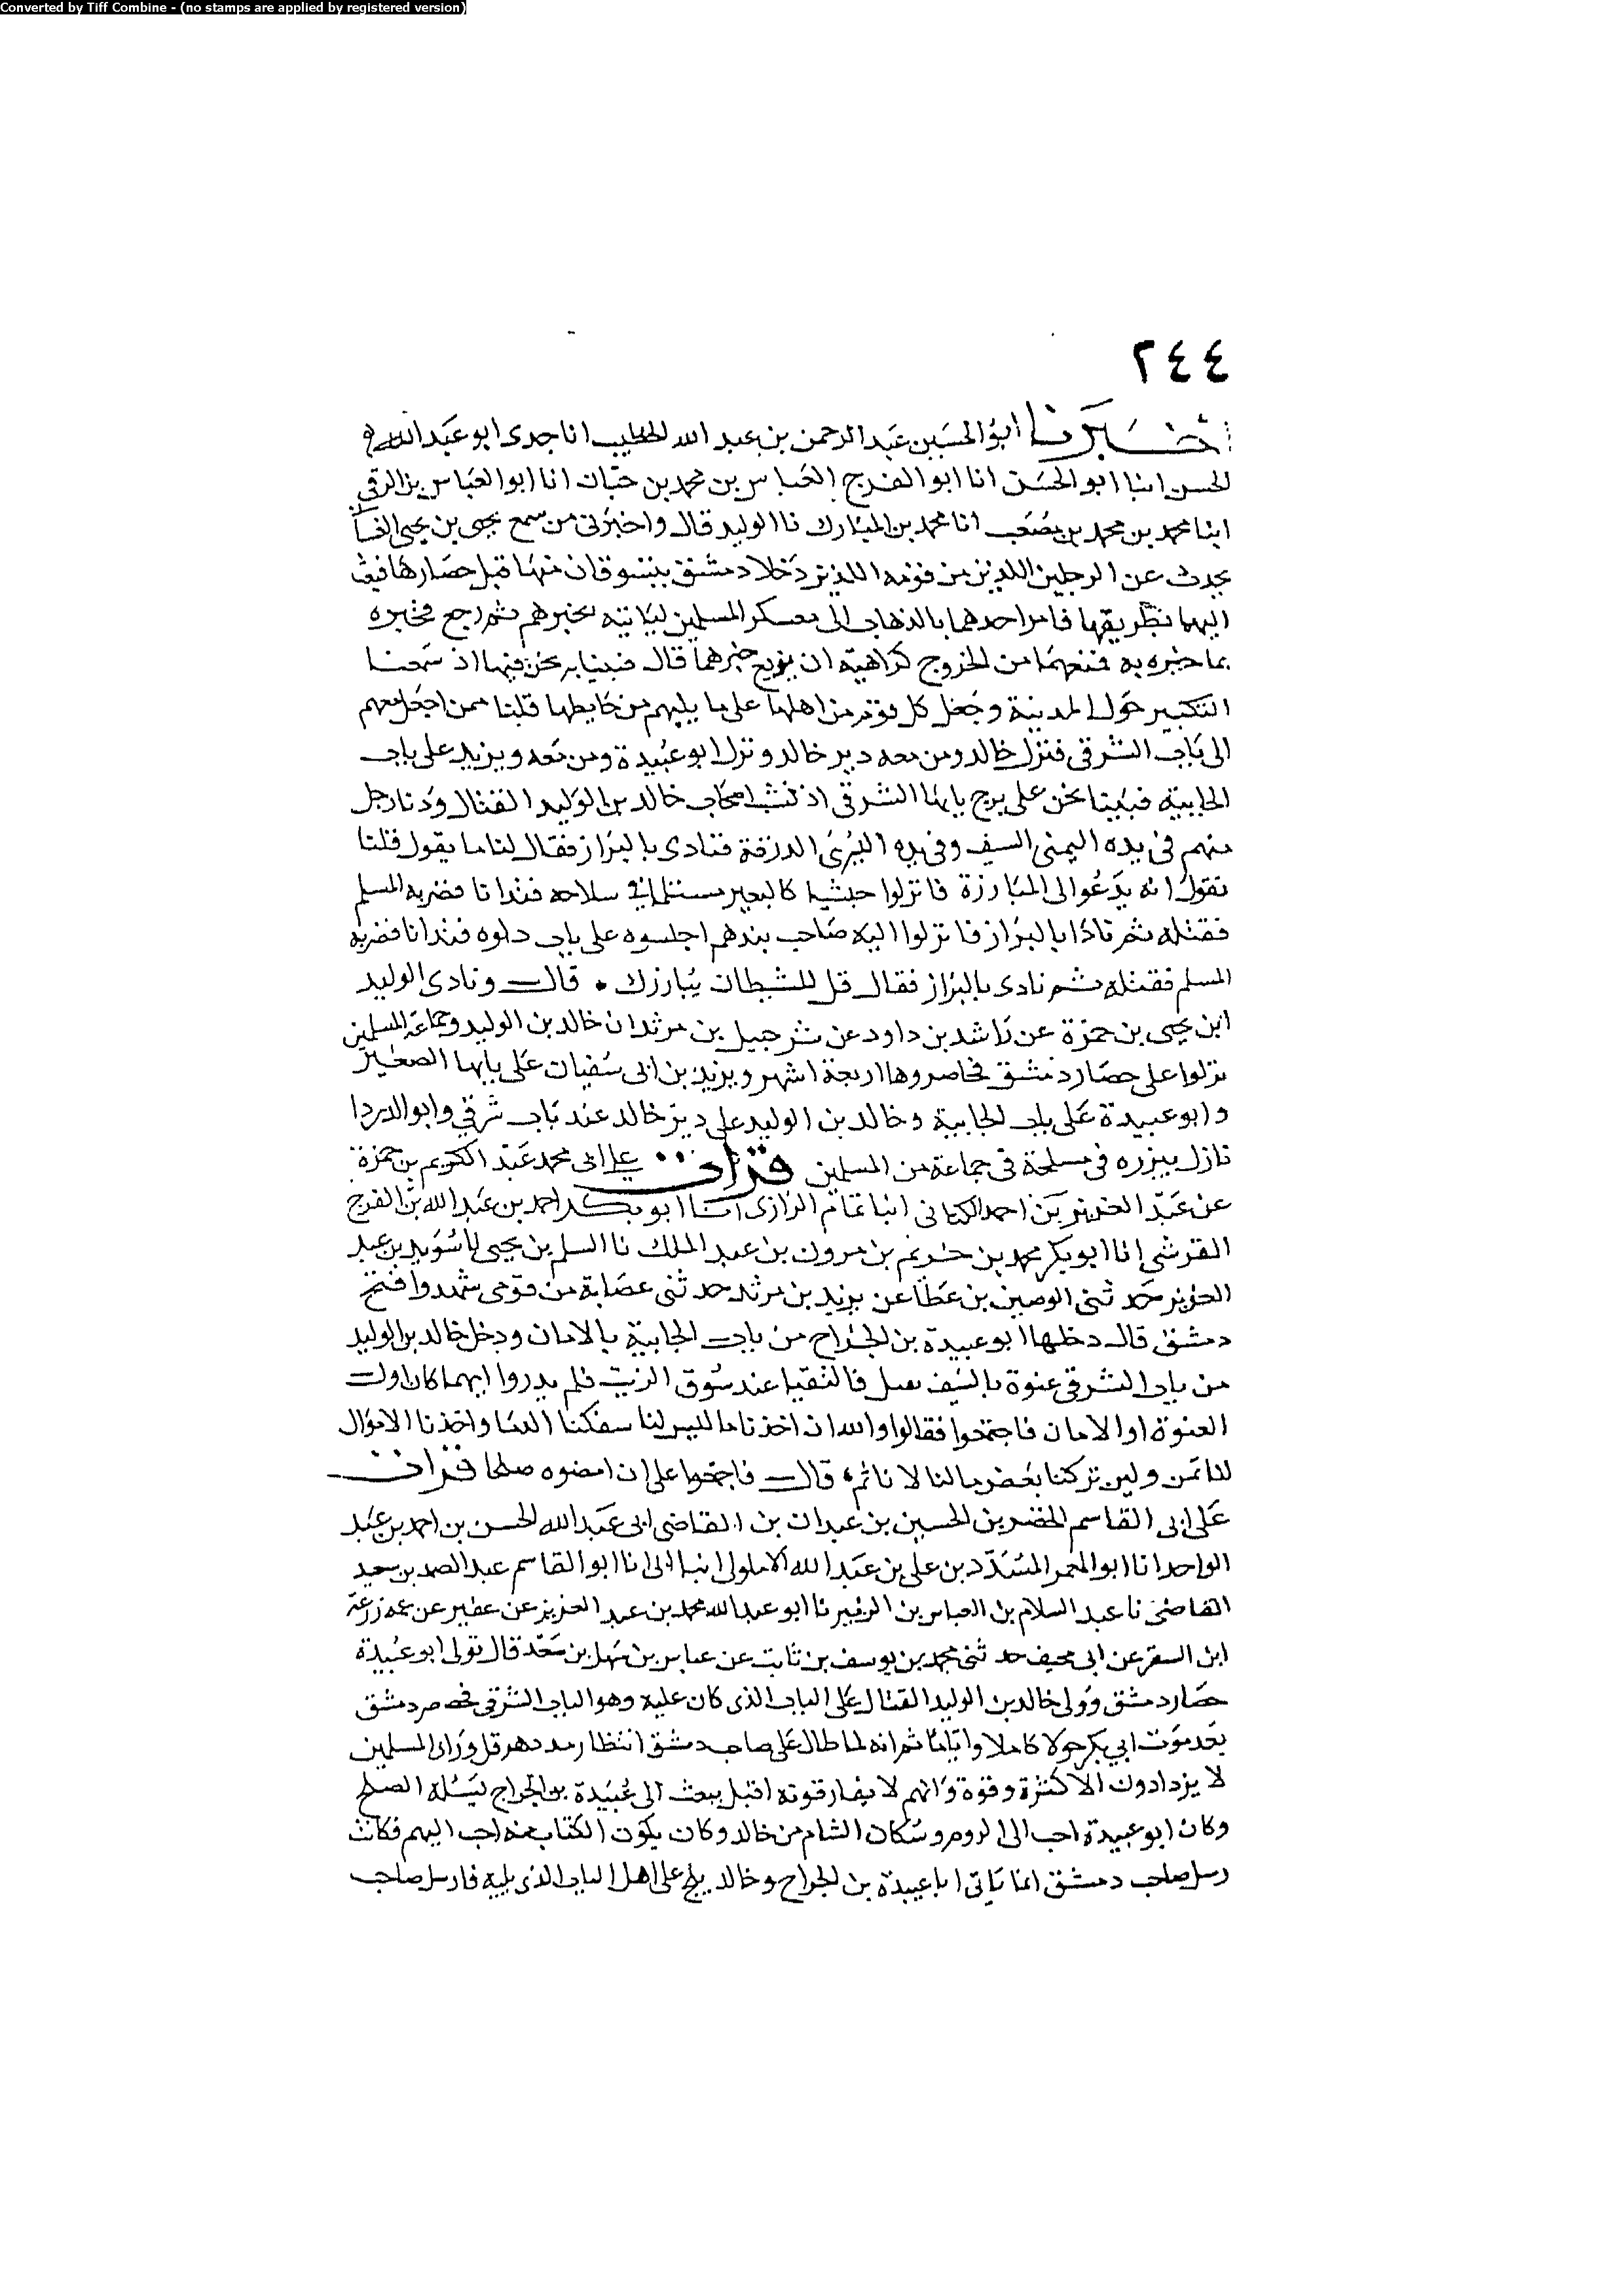 Converted by Tiff Combine - (no stamps are applied by registered version)
٢٤٤
اخبرنا ابو الحسين عبد الرحمن بن عبد الله الخطيب انا جدى ابو عبد الله
الحسن انبا ابو الحسن انا ابو الفرج العباس بن محمد بن حبان انا ابو العباس بن الزقى
ابنا محمد بن محمد بن مصعب انا محمد بن المبارك نا الوليد قال واخبرنى من سمع يحيى بن يحيى الغسا
يحدث عن الرجلين اللذين من قومه اللذين دخلا دمشق يتسوقان منها قبل حصارها فبعث
اليهما بطريقها فامر احدهما بالذهاب الى معسكر المسلمين لياتيه بخبرهم ثم رجع فخبره
بما خبره به فمنعهما من الخروج كراهية ان يذيع خبرهما قال فبينا نحن فيها اذ سمعنا
التكبير حول المدينة وجعل كل قوم من اهلها على ما يليهم من حايطها قلبنا ممن اجعل معهم
الى باب الشرقى فنزل خالد ومن معه دير خالد ونزل ابو عبيدة ومن معه ويزيد على باب
الجابية فبينا نحن على برج بابها الشرقى اذ نشب اصحاب خالد بن الوليد القتال ودنا رجل
منهم فى يده اليمنى السيف وفى يده اليسرى الدرقة فنادى بالبراز فقال لنا ما يقول قلنا
نقول انه يدعو الى المبارزة فانزلوا حبشيا كالبعير مستلئما فى سلاحه فتدانا فضربه المسلم
فقتله ثم نادا بالبراز فانزلوا اليه صاحب بندهم اجلسوه على باب دلوه فتدانا فضربه
المسلم فقتله ثم نادى بالبراز فقال قل للشيطان يبارزك • قال ونادى الوليد
ابن يحيى بن حمزة عن راشد بن داود عن شرحبيل بن مرثد ان خالد بن الوليد وجماعة المسلمين
نزلوا على حصار دمشق فحاصروها اربعة اشهر ويزيد بن ابى سفيان على بابها الصغير
وابو عبيدة على باب الجابية وخالد بن الوليد على دير خالد عند باب شرقي وابو الدردا
نازل ببرزه فى مسلحة فى جماعة من المسلمين قرات على ابى محمد عبد الكريم بن حمزة
عن عبد العزيز بن احمد الكتانى انبا تمام الرازى انا ابو بكر احمد بن عبد الله بن الفرج
القرشى انا ابو بكر محمد بن خريم بن مرون بن عبد الملك نا السلم بن يحيى نا سويد بن عبد
العزيز حدثنى الوصين بن عطا عن يزيد بن مرثد حدثنى عصابة من قومى شهدوا فتح
دمشق قال دخلها ابو عبيدة بن الجراح من باب الجابية بالامان ودخل خالد بن الوليد
من باب الشرقى عنوة بالسيف يقتل فالتقيا عند سوق الزيت فلم يدروا ايهما كان اول
العنوة او الامان فاجتمعوا فقالوا والله ان اخذنا ما ليس لنا سفكنا الدما واخذنا الاموال
لناثمن ولين تركنا بعض ما لنا لا ناثم قال فاجتمعوا على ان امضوه صلحا قرات
على ابى القاسم الخضر بن الحسين بن عبدان بن القاضى ابى عبد الله الحسن بن احمد بن عبد
الواحد انا ابو المعمر المسدد بن على بن عبد الله الاملولى انبا ابى انا ابو القاسم عبد الصمد بن سعيد
القاضى نا عبد السلام بن العباس بن الزبير نا ابو عبد الله محمد بن عبد العزيز عن عفير عن عمه زرعة
ابن السقر عن ابى مخيف حدثنى محمد بن يوسف بن ثابت عن عباس بن سهل بن سعد قال تولى ابو عبيدة
حصار دمشق وولى خالد بن الوليد القتال على الباب الذى كان عليه وهو الباب الشرقى فحصر دمشق
بعد موت ابي بكر حولا كاملا واياما ثم انه لما طال على صاحب دمشق انتظار مدد هرقل وراى المسلمين
لا يزدادون الا كثرة وقوة وانهم لا يفارقونه اقبل يبعث الى عبيدة بن الجراح يسئله الصلح
وكان ابو عبيدة احب الى الروم وسكان الشام من خالد وكان يكون الكتاب منه احب اليهم فكانت
رسل صاحب دمشق انما تاتى ابا عبيدة بن الجراح وخالد يلح على اهل الباب الذى يليه فارسل صاحب